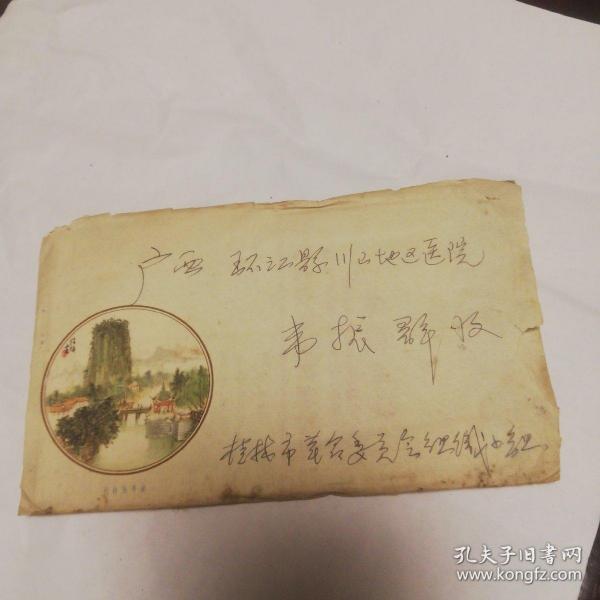 广西 环江縣川山地区医院
韦振群 收
桂林市革命委员会组织小组
孔夫子旧书网
www.kongfz.com